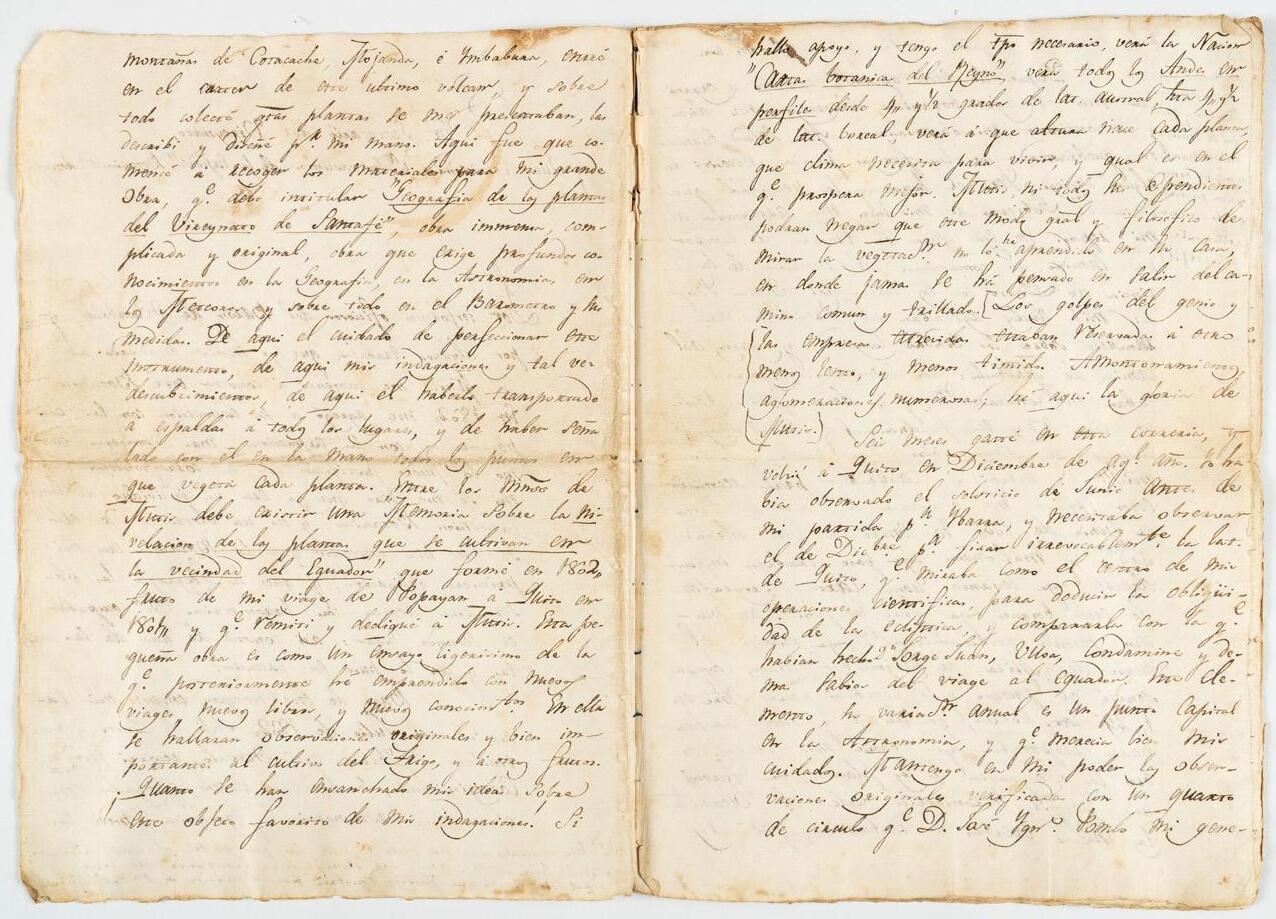 montañas de Cotacache, Mojanda, é Ymbabura, entré
en el crater de este ultimo volcan, y sobre
todo colecté qtas plantas se me presentaban, las
describi y diseñé pr mi mano. Aqui fue que co-
mencé á recoger los materiales para mi grande
obra, qe debe intitular "Geografia de las plantas
del Vireynato de Santafé", obra immensa, com-
plicada y original, obra que exige profundos co-
nocimientos en la Geografia, en la Astronomia, en
los Meteoros, y sobre todo en el Barometro y sus
medidas. De aqui el cuidado de perfeccionar este
instrumento, de aqui mis indagaciones y tal vez
descubrimientos, de aqui el haberlo transportado
á espaldas á todos los lugares, y de haber seña
lado con él en la mano todos los puntos en
que vegeta cada planta. Entre los Mmos de
Mutis debe existir una "Memoria sobre la Ni-
velacion de las plantas que se cultivan en
la vecindad del Equador" que formé en 1802,,
fruto de mi viage de Popayan á Quito en
1801,, y qe remiti y dediqué á Mutis. Esta pe-
queña obra es como un ensayo ligerisimo de la
qe posteriormente hé emprendido con nuevos
viages, nuevos libros, y nuevos conocimtos. En ella
se hallaran observaciones originales y bien im-
portantes al cultivo del Trigo, y á otros frutos.
Quanto se han ensanchado mis ideas sobre
este objeto favorito de mis indagaciones. Si
hallo apoyo, y tengo el tpo necesario, verá la Nacion
"Cartas botanicas del Reyno", verá todos los Andes en
perfiles desde 4,, y 1/2 grados de lat. austral, hta 4,, y 1/2
de lat. boreal, verá á que altura nace cada planta,
que clima necesita para vivir, y qual es en el
qe prospera mejor. Mutis, ni todos sus dependientes
podran negar que este modo gral y filosofico de
mirar la vegetacn no lo he aprendido en su casa,
en donde jamas se há pensado en salir del ca-
mino comun y trillado. [Los golpes del genio y
las empresas atrevidas estaban reservadas á otro
menos lento, y menos timido. Amontonamientos,
aglomeraciones numerosas; hé aqui la gloria de
Mutis.]
Seis meses gasté en esta correria, y
volvi á Quito en Diciembre de aql año. Yo ha
bia observado el solsticio de Junio antes de
mi partida pa Ybarra, y necesitaba observar
el de Dicbre pa fixar irrevocablemte la lat.
de Quito, qe miraba como el centro de mis
operaciones cientificas, para deducir la obliqüi-
dad de la ecliptica, y compararla con la qe
habian hecho Dn Jorge Juan, Ulloa, Condamine y de-
mas sabios del viage al Equador. Este ele-
mento, su variacn anual es un punto capital
en la Astronomia, y qe merecia bien mis
cuidados. Mantengo en mi poder las obser-
vaciones originales verificadas con un quarto
de circulo qe D. José Ygno Pombo mi gene-